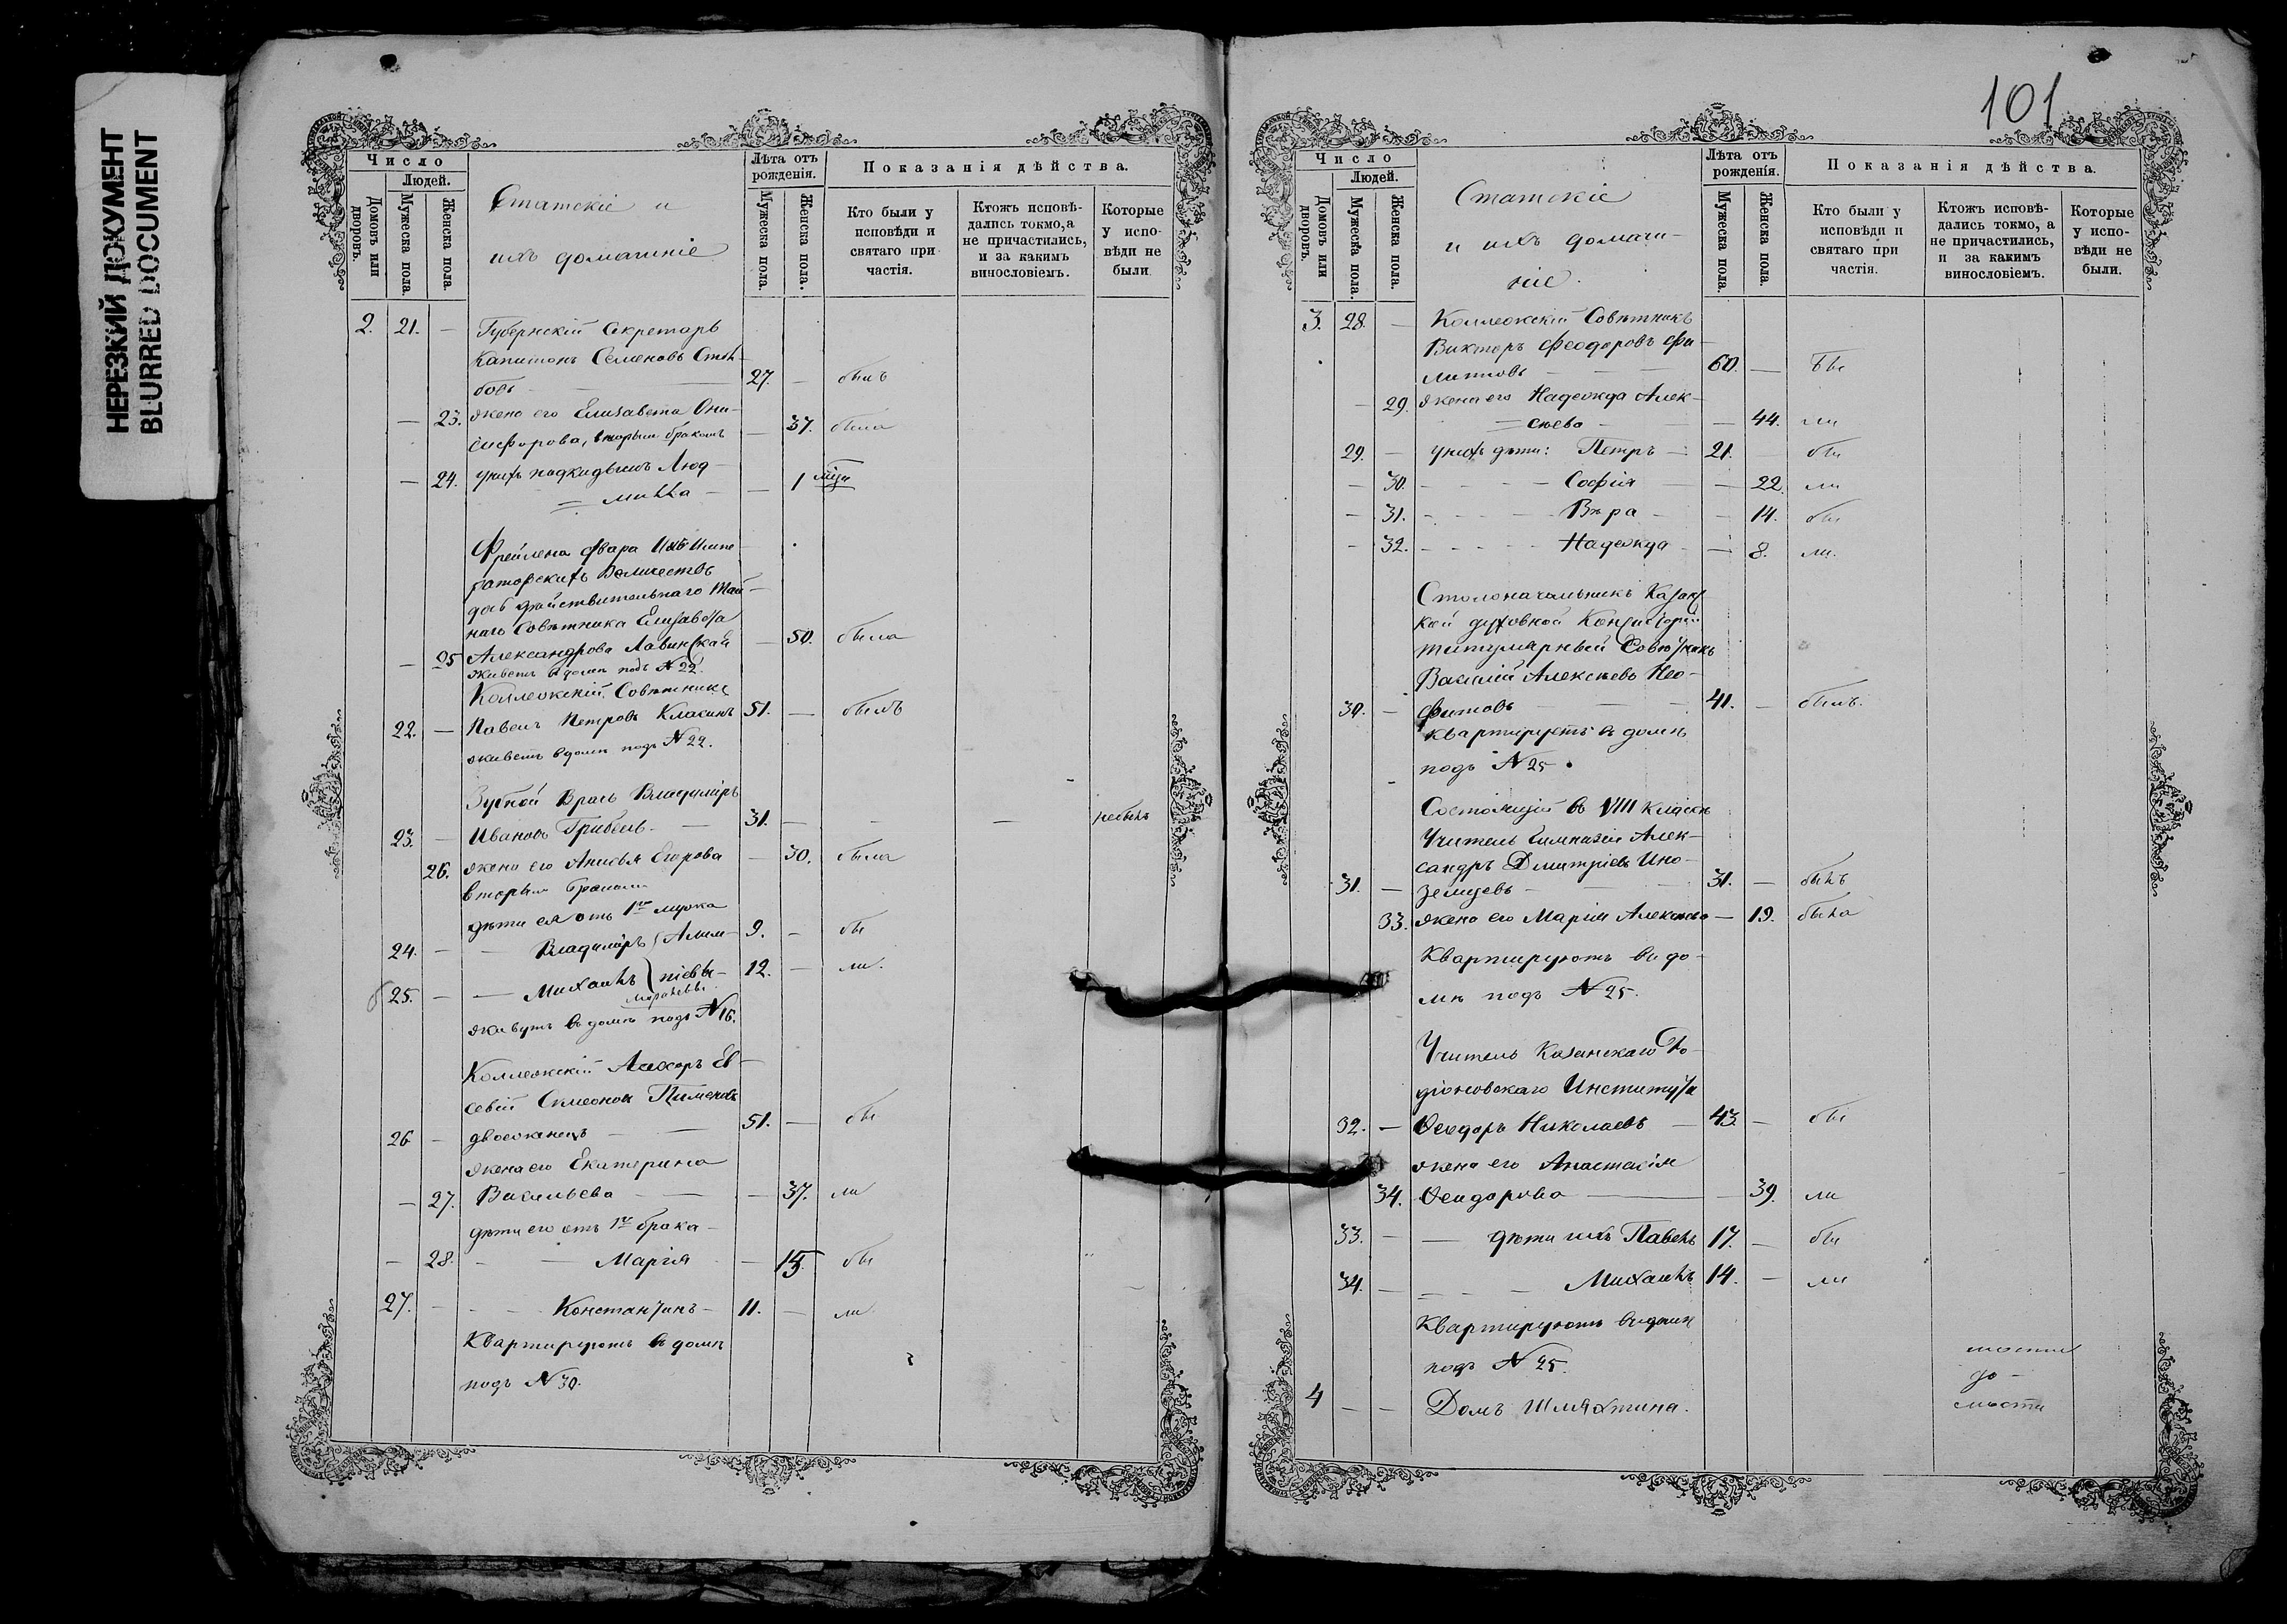 НЕРЕЗКИЙ ДОКУМЕНТ
BLURRED DOCUMENT
Число
Людей.
Домовъ или дворовъ.
Мужеска пола.
Женска пола.
Статскіе и
ихъ домашніе
Лѣта отъ рожденія.
Мужеска пола.
Женска пола.
Показанія дѣйства.
Кто были у исповѣди и святаго при частія.
Ктожъ исповѣ-дались токмо, а не причастились, и за какимъ винословіемъ.
Которые у испо-вѣди не были.
2. 21. — Губернскій Секретарь
Капитонъ Семеновъ Столбовъ 27. — былъ
— 23. жена его Елисавета Они-
сифорова, вторым бракомъ — 37. была
— 24. у нихъ подкидышъ Люд-
= милла — — 1
Фрейлена Двора Ихъ Импе-
раторскихъ Величествъ
дочь дѣйствительнаго Тай-
наго Совѣтника Елизавета
— 25 Александрова Лавинская — 50. была
живетъ въ домѣ подъ № 22.
Коллежскій Совѣтникъ
22. — Павелъ Петровъ Класинъ 51. — былъ
живетъ в домѣ подъ № 22.
Зубной Врачь Владиміръ
23. — Ивановъ Грибель — 31. — — — небылъ
26. жена его Анисья Егорова — 30. была
вторым браком
дѣти ея отъ 1го мужа
24. — — Владиміръ 9. — бы
25. — — Михаилъ 12. — ли.
живутъ въ домѣ подъ № 16.
Коллежскій Асесоръ Ев-
севій Симеонов Пименовъ
26 — двоеженецъ — 51. — бы
жена его Екатерина
— 27. Васильева — — 37. ли
дѣти его отъ 1го брака —
— 28. — Марія — 15. бы
27. — — Константинъ — 11. — ли
Квартируютъ въ домѣ
подъ № 30.
101
Число
Людей.
Домовъ или дворовъ.
Мужеска пола.
Женска пола.
Статскіе
и ихъ домаш-
ніе.
Лѣта отъ рожденія.
Мужеска пола.
Женска пола.
Показанія дѣйства.
Кто были у исповѣди и святаго при частія.
Ктожъ исповѣ-дались токмо, а не причастились, и за какимъ винословіемъ.
Которые у испо-вѣди не были.
3. 28. — Коллежскій Совѣтникъ
Викторъ Феодоровъ Фи-
липповъ — 60. — бы
— 29. жена его Надежда Алек-
= сѣева — — 44. ли
29. — у нихъ дѣти: Петръ — 21. бы
— 30. — Софія — 22. ли
— 31. — Вѣра — 14. бы
— 32. — Надежда — 8. ли.
Столоначальникъ Казанс
кой духовной Консисторіи
титулярный Совѣтникъ
Василій Алексѣевъ Нео-
30. — фитовъ — 41. — былъ.
квартируетъ в домѣ
подъ № 25.
Состоящій въ VIII классѣ
Учитель Гимназіи Алек-
сандръ Дмитріевъ Ино-
31. — земцевъ — 31. — былъ
33. жена его Марія Алексѣева — 19. была
Квартируютъ в до-
мѣ подъ № 25.
Учитель Казанскаго Ро-
діоновскаго Института
32. — Ѳеодоръ Николаевъ — 43 — бы
жена его Анастасія
34. Ѳеодорова — — 39. ли
33. — — дѣти ихъ Павелъ 17. — бы
34. — — Михаилъ 14. — ли
Квартируютъ въ домѣ
подъ № 25.
4 — — Домъ Шляхтина.